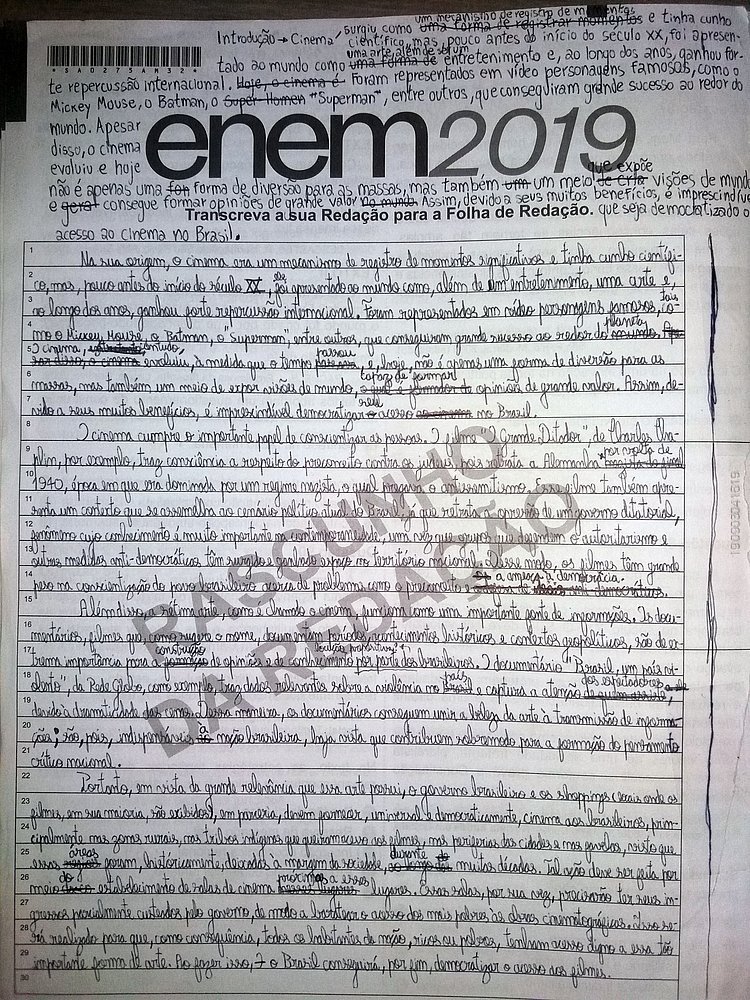 um mecanismo de registro de momentos
Introdução → Cinema, surgiu como uma forma de registrar momentos e tinha cunho
científico, mas, pouco antes do início do século XX, foi apresen-
uma arte, além de um
tado ao mundo como uma forma de entretenimento e, ao longo dos anos, ganhou for-
te repercussão internacional. Hoje, o cinema é Foram representados em vídeo personagens famosos, como o
*SA0275AM32*
Mickey Mouse, o Batman, o Super-Homen "Superman", entre outros, que conseguiram grande sucesso ao redor do
mundo. Apesar
disso, o cinema
evoluiu e hoje
enem2019
que expõe
não é apenas uma for forma de diversão para as massas, mas também um um meio de cria visões de mundo
e geral consegue formar opiniões de grande valor no mundo. Assim, devido a seus muitos benefícios, é imprescindível
Transcreva a sua Redação para a Folha de Redação. que seja democratizado o
acesso ao cinema no Brasil.
1 Na sua origem, o cinema era um mecanismo de registro de momentos significativos e tinha cunho científi-
2 co, mas, pouco antes do início do século XX, ele foi apresentado ao mundo como, além de um entretenimento, uma arte e,
3 ao longo dos anos, ganhou forte repercussão internacional. Foram representados em vídeo personagens famosos, tais co-
4 mo o Mickey Mouse, o Batman, o "Superman", entre outros, que conseguiram grande sucesso ao redor do mundo. planeta.
5 O cinema, contudo, evoluiu, à medida que o tempo passou e, hoje, não é apenas uma forma de diversão para as
6 massas, mas também um meio de expor visões de mundo, capaz de formar opiniões de grande valor. Assim, de-
7 vido a seus muitos benefícios, é imprescindível democratizar o seu acesso ao cinema no Brasil.
8 O cinema cumpre o importante papel de conscientizar as pessoas. O filme "O Grande Ditador", de Charles Cha-
9 plin, por exemplo, traz consciência a respeito do preconceito contra os judeus, pois retrata a Alemanha por volta de
10 1940, época em que era dominada por um regime nazista, o qual pregava o antissemitismo. Esse filme também apre-
11 senta um contexto que se assemelha ao cenário político atual do Brasil, já que retrata a opressão de um governo ditatorial,
12 fenômeno cujo conhecimento é muito importante na contemporaneidade, uma vez que grupos que defendem o autoritarismo e
13 outras medidas anti-democráticas têm surgido e ganhado espaço no território nacional. Desse modo, os filmes têm grande
14 peso na conscientização do povo brasileiro acerca de problemas como o preconceito e a ameaça à democracia.
15 Além disso, a sétima arte, como é chamado o cinema, funciona como uma importante fonte de informações. Os docu-
16 mentários, filmes que, como sugere o nome, documentam períodos, acontecimentos históricos e contextos geopolíticos, são de ex-
locução prepositiva
17 trema importância para a formação construção de opiniões e de conhecimento por parte dos brasileiros. O documentário "Brasil, um país vi-
18 olento", da Rede Globo, como exemplo, traz dados relevantes sobre a violência no Brasil país e captura a atenção de quem assiste, dos espectadores
19 devido à dramaticidade das cenas. Dessa maneira, os documentários conseguem unir a beleza da arte à transmissão de informa-
20 ções; são, pois, indispensáveis à nação brasileira, haja vista que contribuem sobremodo para a formação do pensamento
21 crítico nacional.
22 Portanto, em vista da grande relevância que essa arte possui, o governo brasileiro e os shoppings (locais onde os
23 filmes, em sua maioria, são exibidos), em parceria, devem fornecer, universal e democraticamente, cinema aos brasileiros, prin-
24 cipalmente nas zonas rurais, nas tribos indígenas que queiram acesso aos filmes, nas periferias das cidades e nas favelas, visto que
25 essas áreas foram, historicamente, deixadas à margem da sociedade, ao longo de durante muitas décadas. Tal ação deve ser feita por
26 meio do estabelecimento de salas de cinema próximas a esses lugares. Essas salas, por sua vez, precisarão ter seus in-
27 gressos parcialmente custeados pelo governo, de modo a baratear o acesso dos mais pobres às obras cinematográficas. Isso se-
28 rá realizado para que, como consequência, todos os habitantes da nação, ricos ou pobres, tenham acesso digno a essa tão
29 importante forma de arte. Ao fazer isso, o Brasil conseguirá, por fim, democratizar o acesso aos filmes.
30
RASCUNHO
DA REDAÇÃO